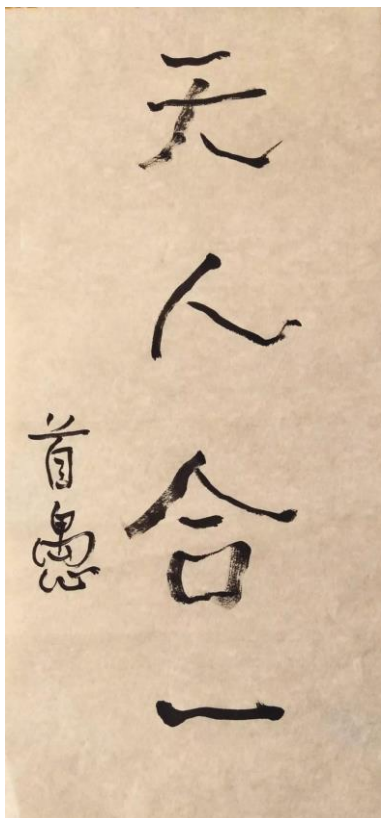 天人合一
首愚